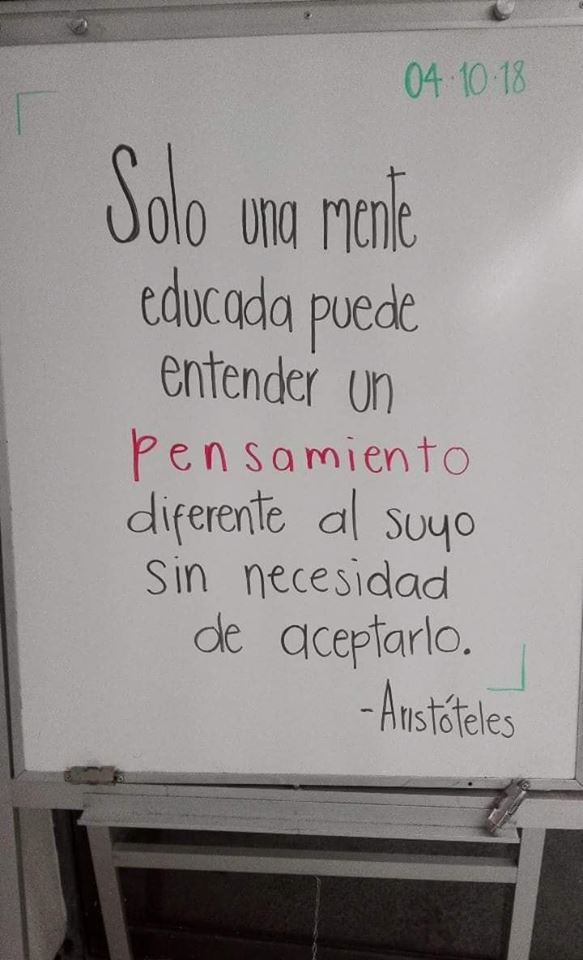 04·10·18
Solo una mente
educada puede
entender un
pensamiento
diferente al suyo
sin necesidad
de aceptarlo.
-Aristóteles